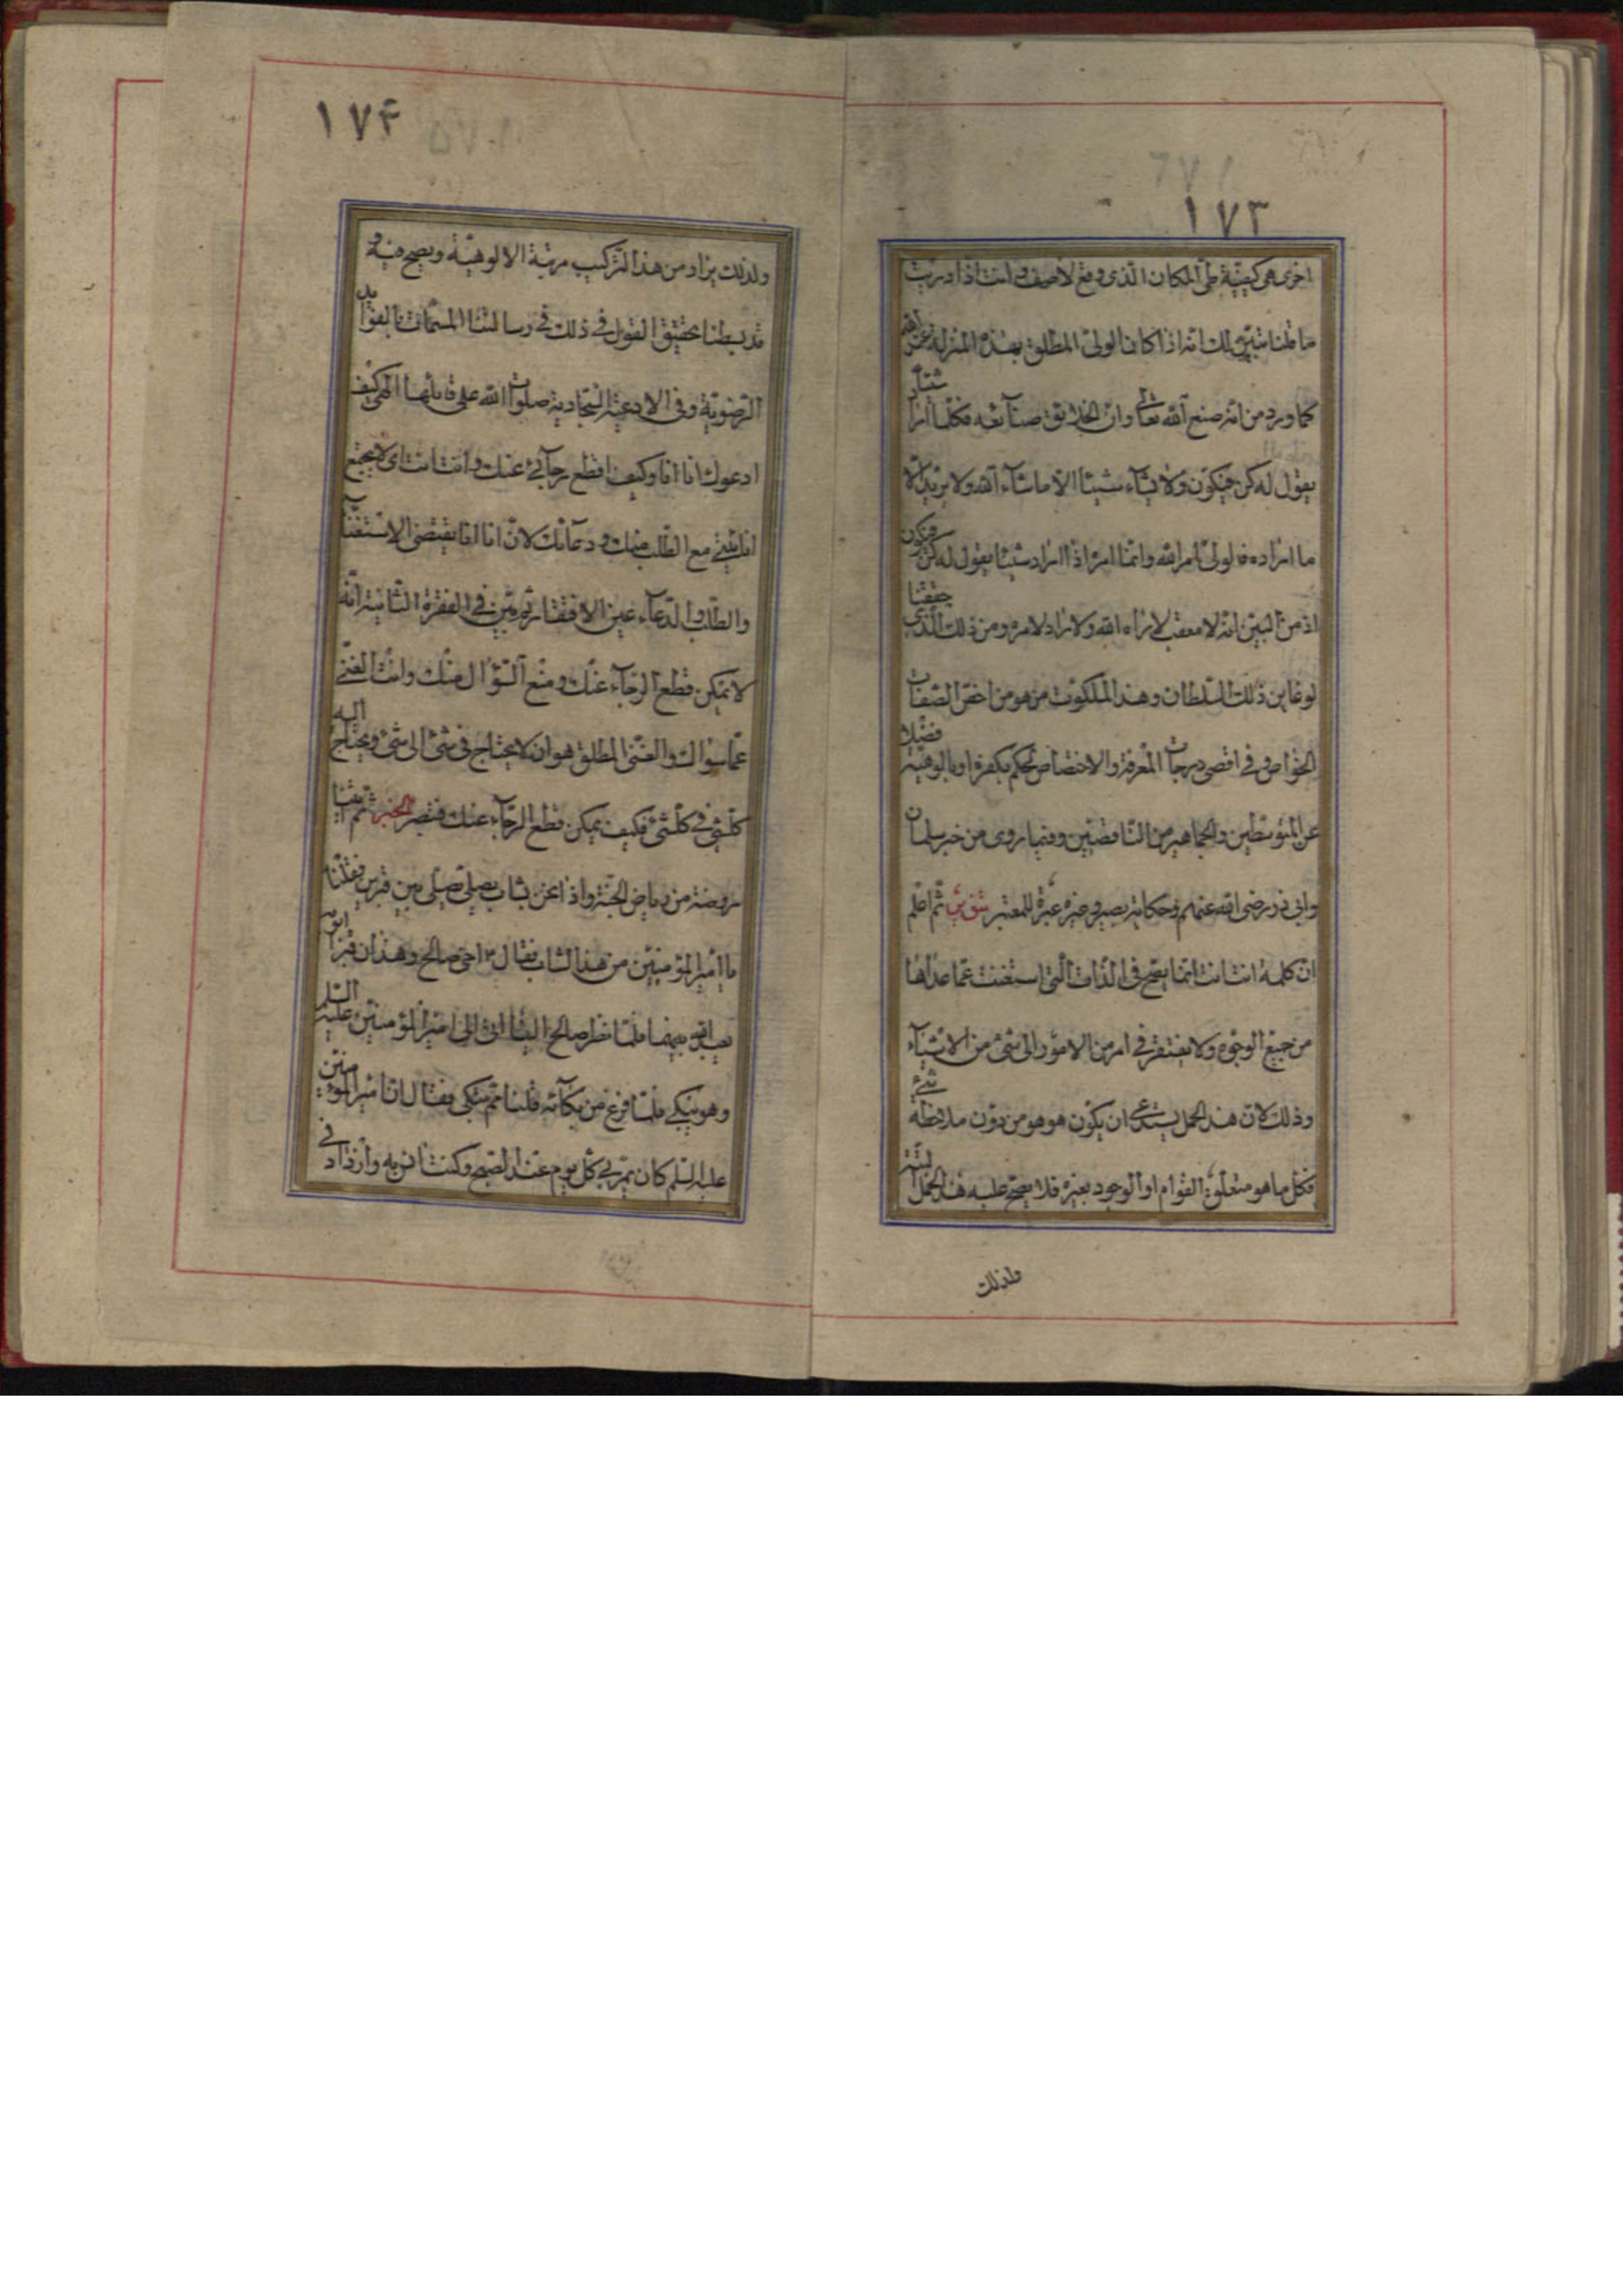 ١٧٣
اخرى هى كيفية طى المكان الذى وقع لاصف وانت اذا دريت
ما قلنا تبين لك انه اذا كان الولى المطلق بهذه المنزلة من الله
كما ورد من انه صنع الله تعالى وان الخلايق صنايعه فكلما اراد شيئا
يقول له كن فيكون ولا يشاء شيئا الا ما شاء الله ولا يريد الا
ما اراده فالولى امر الله وانما امره اذا اراد شيئا يقول له كن فيكون
اذ من البين انه لا معقب لامر الله ولا راد لامره ومن ذلك الذى حققنا
لو عاين ذلك السلطان وهذا الملكوت من هو من اخص الصفات
الخواص وفى اقصى درجات المعرفة والاختصاص لحكم بكفره او بالوهيته فضلا
عن المتوسطين والجماهير من الناقصين وفيما روى من خبر سلمان
وابى ذر رضى الله عنهم وحكاية بصير وغيره عبرة للمعتبر ثم اعلم
ان كلمة انت انت انما يصح فى الذات التى استغنت عما عداها
من جميع الوجوه ولا يفتقر فى امر من الامور الى شئ من الاشياء
وذلك لان هذا الحمل يستدعى ان يكون هو هو من دون ملاحظة شئ
فكل ما هو متعلق القوام او الوجود بغيره فلا يصح عليه هذا الحمل
ولذلك
١٧۴
ولذلك يراد من هذا التركيب مرتبة الالوهية ويصح منه و
قد بسطنا تحقيق القول فى ذلك فى رسالتنا المسمات بالفوايد
الرضوية وفى الادعية السجادية صلوات الله على قائلها الهى كيف
ادعوك وانا انا وكيف اقطع رجائى عنك وانت انت اى لا يجتمع
انانيتى مع الطلب منك ودعائك لان انا انا يقتضى الاستغناء
والطلب والدعاء عين الافتقار ثم بين فى الفقرة الثانية انه
لا يمكن قطع الرجاء عنك ومنع السؤال منك وانت الغنى
عما سواك والغنى المطلق هو ان لا يحتاج فى شئ الى شئ ويحتاج اليه
كلشئ فى كلشئ فكيف يمكن قطع الرجاء عنك فتبصر الخبر ثم اتينا
روضة من رياض الجنة واذا نحن بشاب يصلى بين قبرين فقلنا
يا امير المؤمنين من هذا الشاب فقال ع اخى صالح وهذان قبرا ابويه
يعبد الله بينهما فلما نظر صالح الينا اتى الى امير المؤمنين عليه السلم
وهو يبكى فلما فرغ من بكائه قلنا مم تبكى فقال ان امير المؤمنين
عليه السلم كان يمر بى كل يوم عند الصبح وكنت انس به وازداد فى